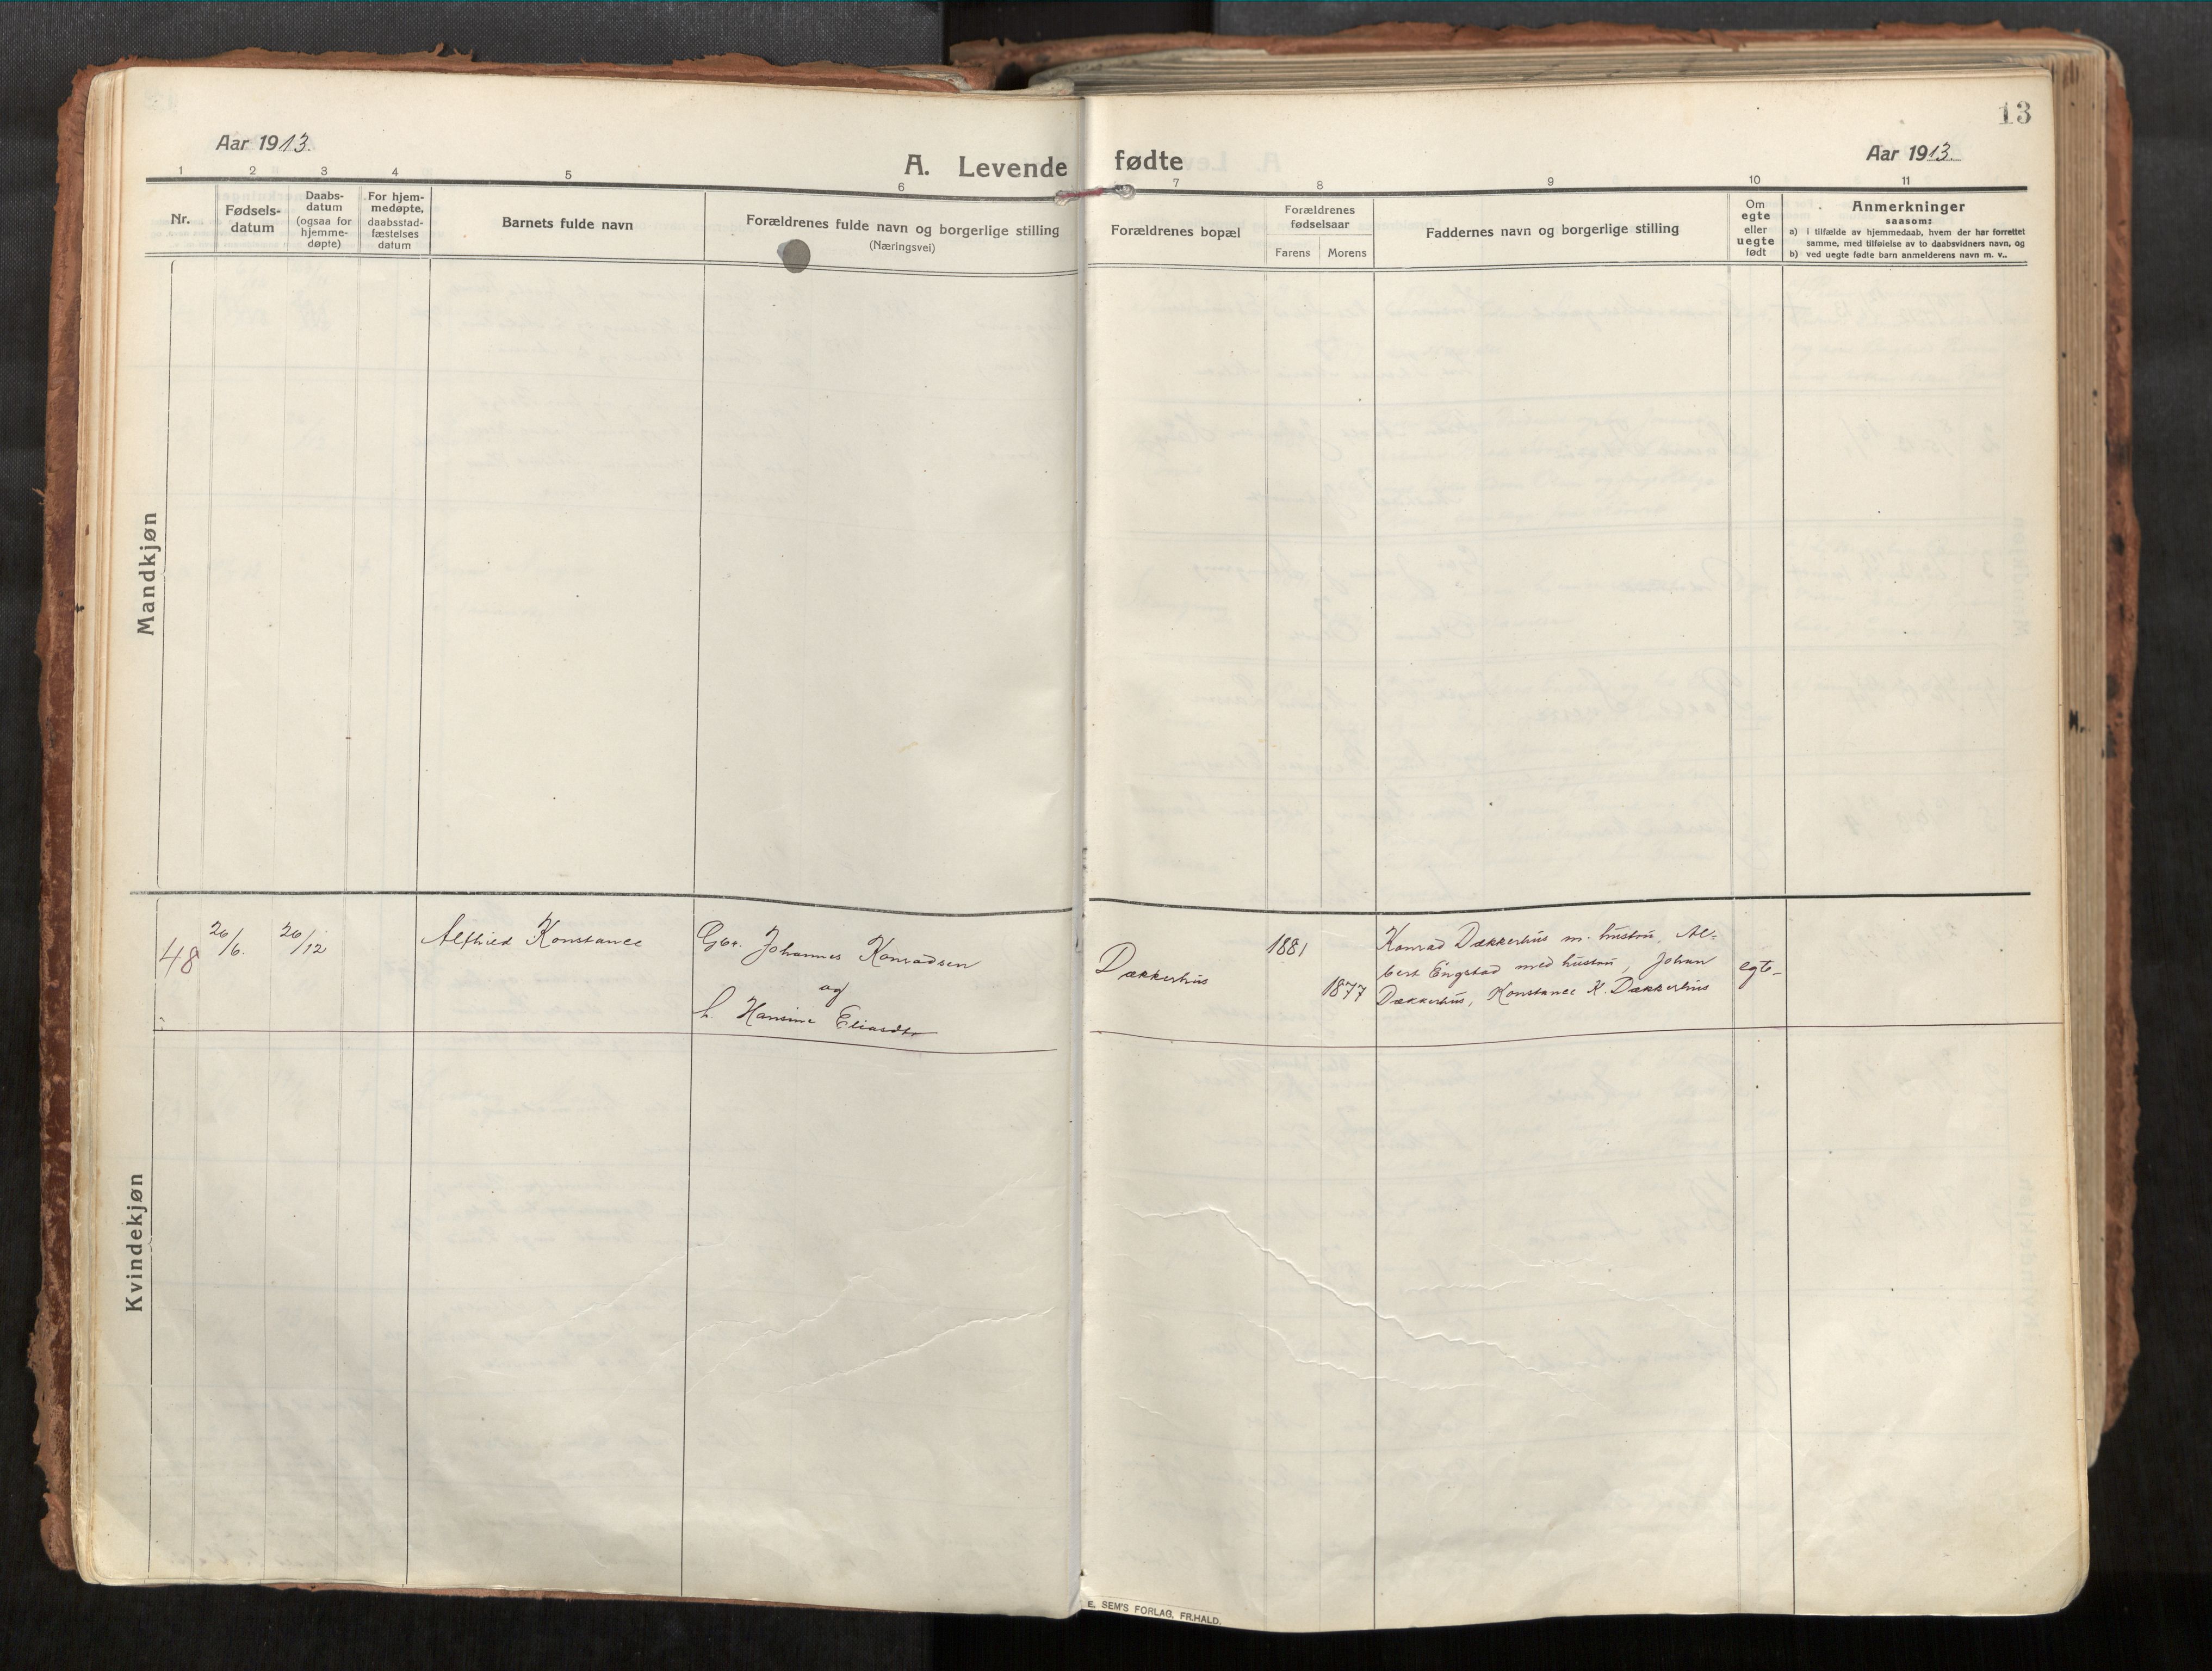 13
Aar 1913.
A. Levende fødte
Aar 1913.
1 2 3 4 5 6 7 8 9 10 11
Nr.
Fødsels-
datum
Daabs-
datum
(ogsaa for
hjemme-
døpte)
For hjem-
medøpte,
daabsstad-
fæstelses
datum
Barnets fulde navn
Forældrenes fulde navn og borgerlige stilling
(Næringsvei)
Forældrenes bopæl
Forældrenes
fødselsaar
Farens
Morens
Faddernes navn og borgerlige stilling
Om
egte
eller
uegte
født
Anmerkninger
saasom:
a) i tilfælde av hjemmedaab, hvem der har forrettet
samme, med tilføielse av to daabsvidners navn, og
b) ved uegte fødte barn anmelderens navn m. v..
Mandkjøn
Kvindekjøn
48
26/6.
26/12
Alfhild Konstance
Gbr. Johannes Konradsen
og
h. Hansine Eliasdtr
Dækkerhus
1881
1877
Konrad Dækkerhus m. hustru, Al=
bert Engstad med hustru, Johan
Dækkerhus, Konstance K. Dækkerhus
egte
E. SEM'S FORLAG, FR.HALD.